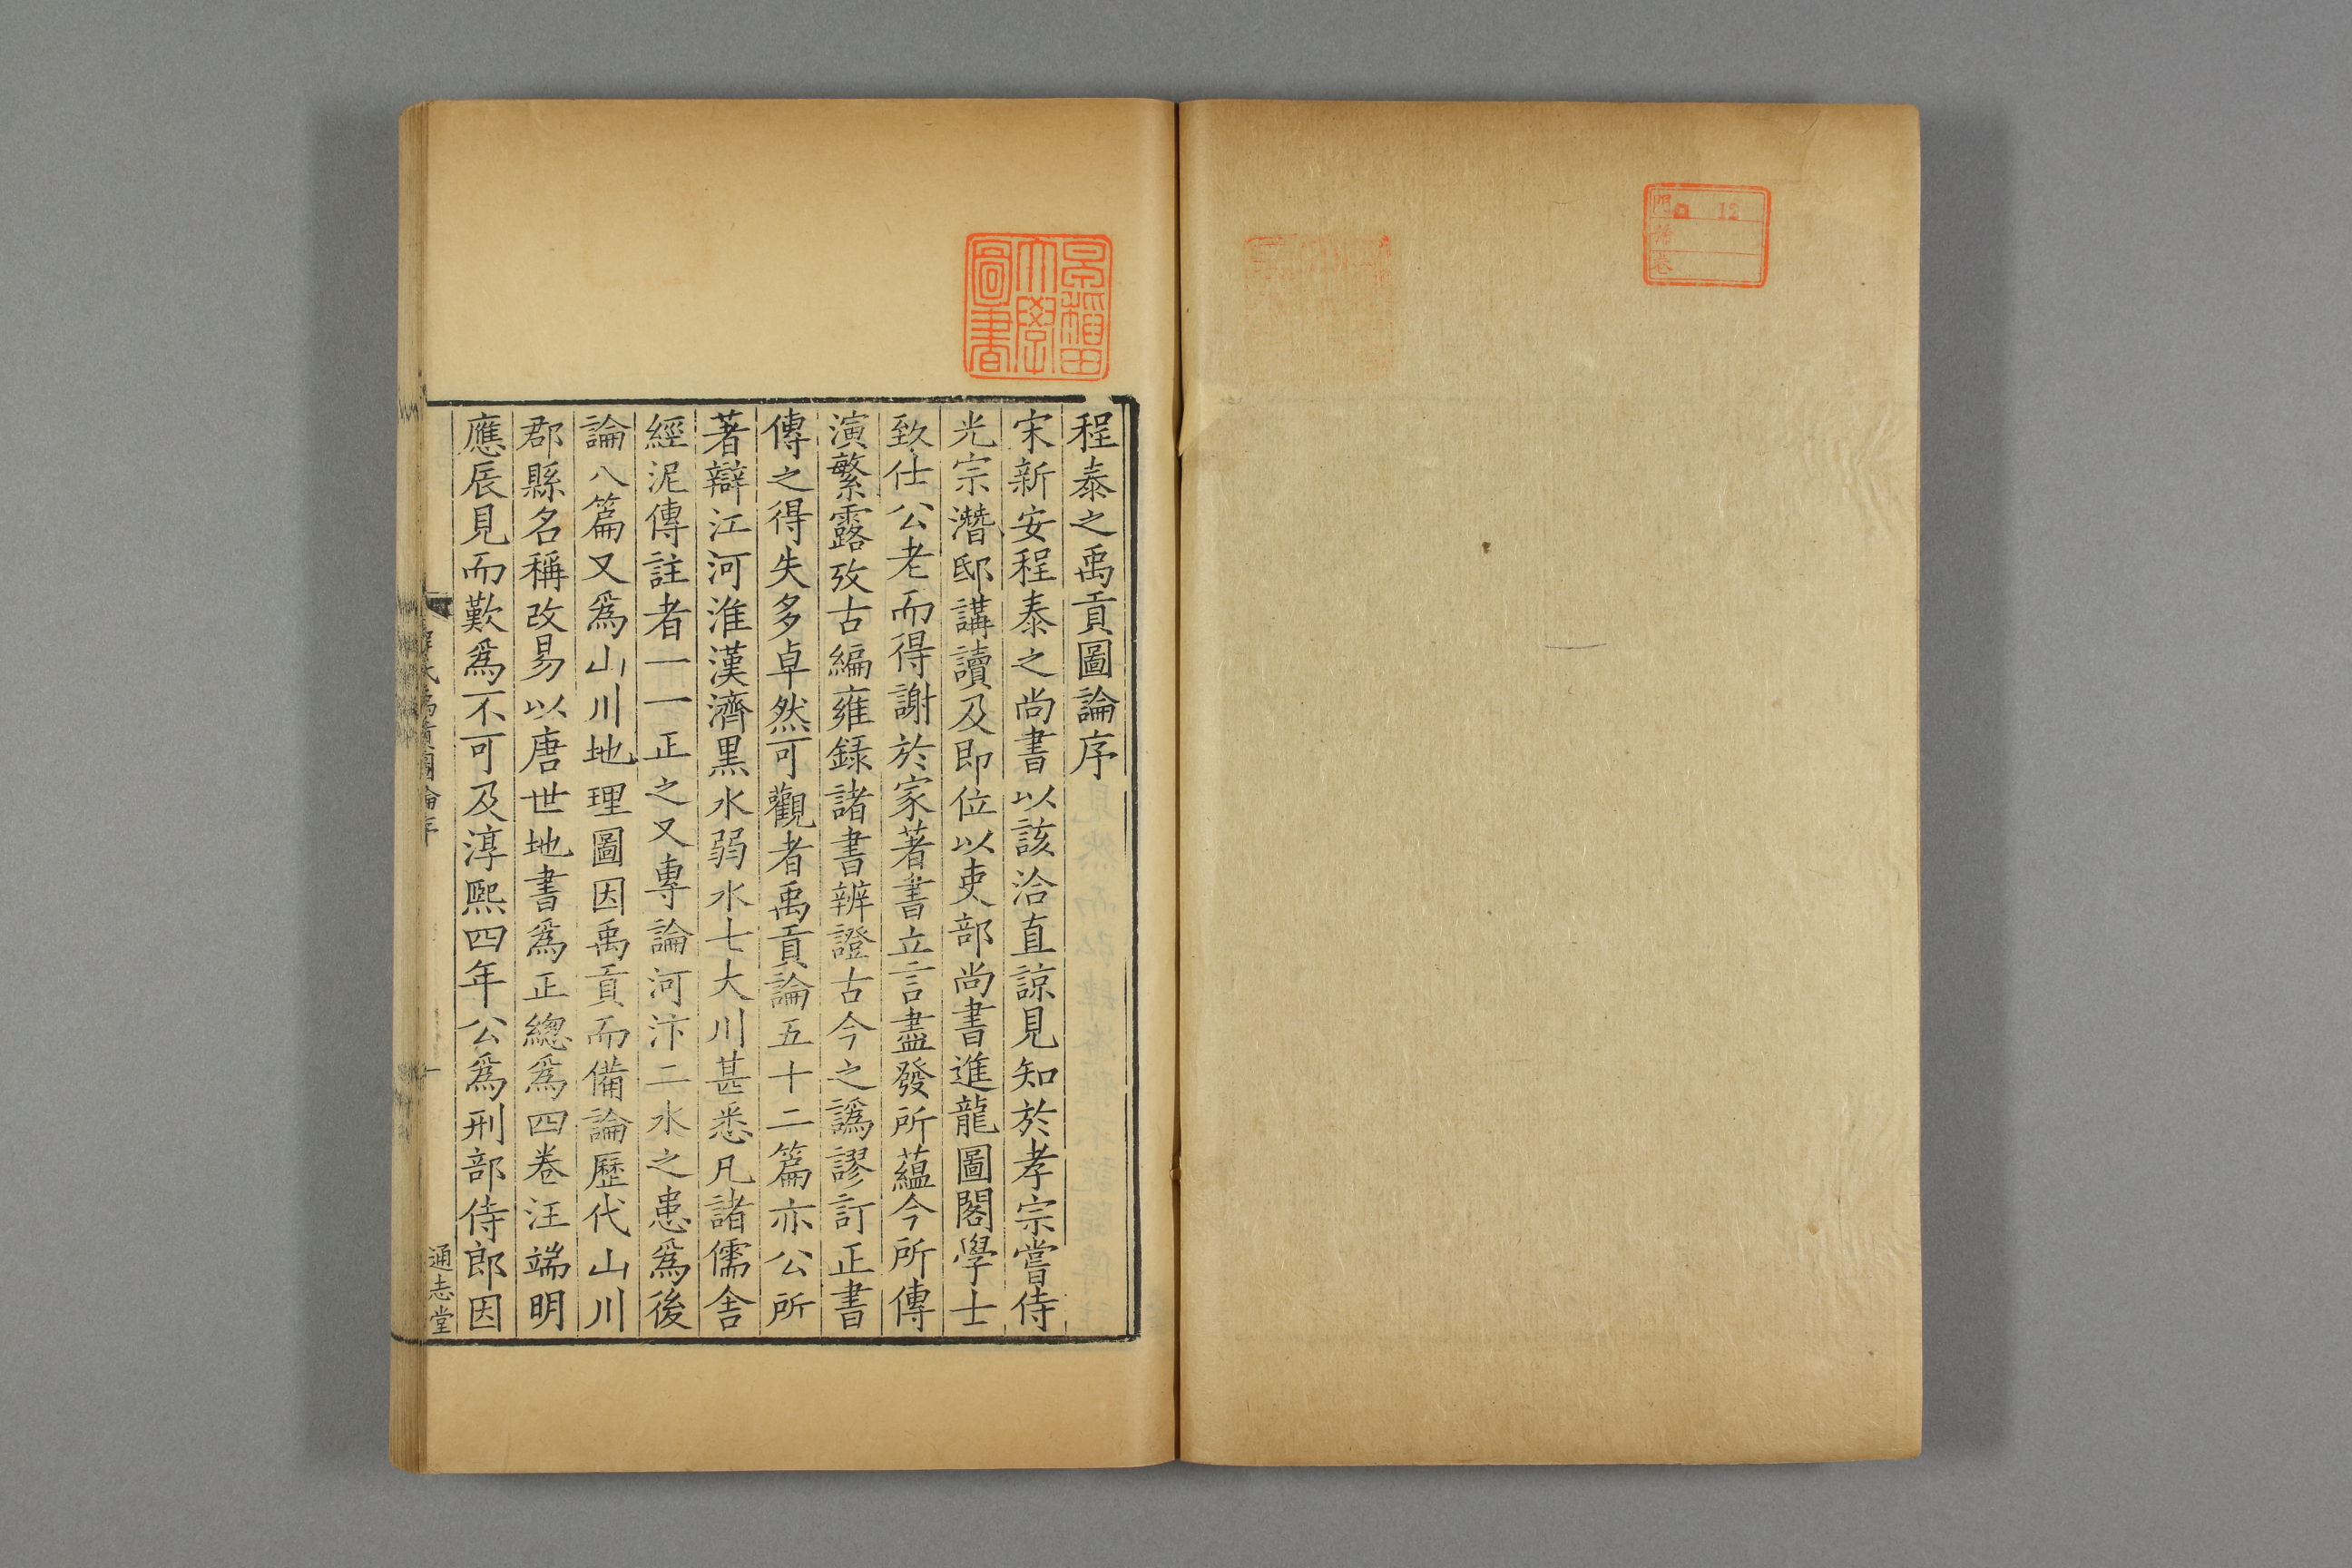 門 12
号
巻
早稲田
大學
圖書
程泰之禹貢圖論序
宋新安程泰之尚書以該洽直諒見知於孝宗嘗侍
光宗潛邸講讀及即位以吏部尚書進龍圖閣學士
致仕公老而得謝於家著書立言盡發所蘊今所傳
演繁露攷古編雍録諸書辨證古今之譌謬訂正書
傳之得失多卓然可觀者禹貢論五十二篇亦公所
著辯江河淮漢濟黒水弱水七大川甚悉凡諸儒舍
經泥傳註者一一正之又專論河汴二水之患爲後
論八篇又爲山川地理圖因禹貢而備論歷代山川
郡縣名稱改易以唐世地書爲正總爲四卷汪端明
應辰見而歎爲不可及淳熙四年公爲刑部侍郎因
程氏禹貢圖論序
一
通志堂